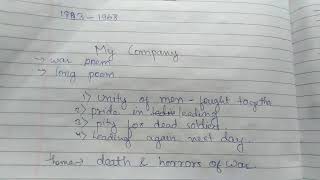 1893-1968
My Company
→ war poem
→ long poem
1) Unity of men - fought together
2) pride in leading
3) pity for dead soldier
4) leading again next day.
theme → death & horrors of war.